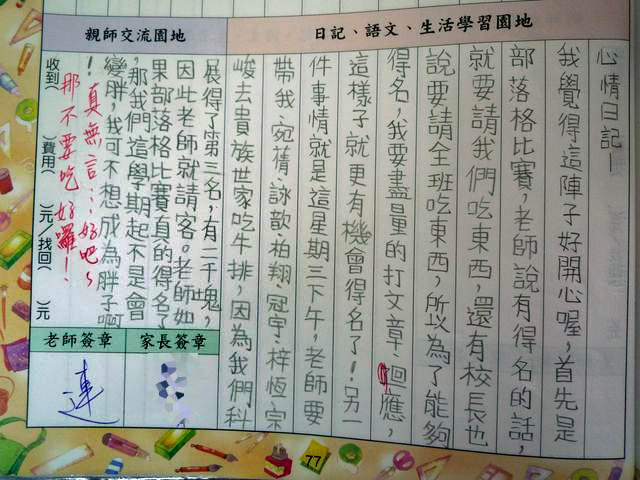 日記、語文、生活學習園地
心情日記一
我覺得這陣子好開心喔，首先是
部落格比賽，老師說有得名的話，
就要請我們吃東西，還有校長也
說要請全班吃東西，所以為了能夠
得名，我要盡量的打文章、迴應，
這樣子就更有機會得名了！另一
件事情就是這星期三下午，老師要
帶我、宛蒨、詠歆、柏翔、冠宇、梓恆、宗
峻去貴族世家吃牛排，因為我們科
親師交流園地
展得了第三名，有二千塊，
因此老師就請客。老師如
果部落格比賽真的得名了
，那我們這學期起不是會
變胖，我可不想成為胖子啊
！
真無言…好吧~
那不要吃好囉！
收到（ ）費用（ ）元/找回（ ）元
家長簽章
老師簽章
連
77